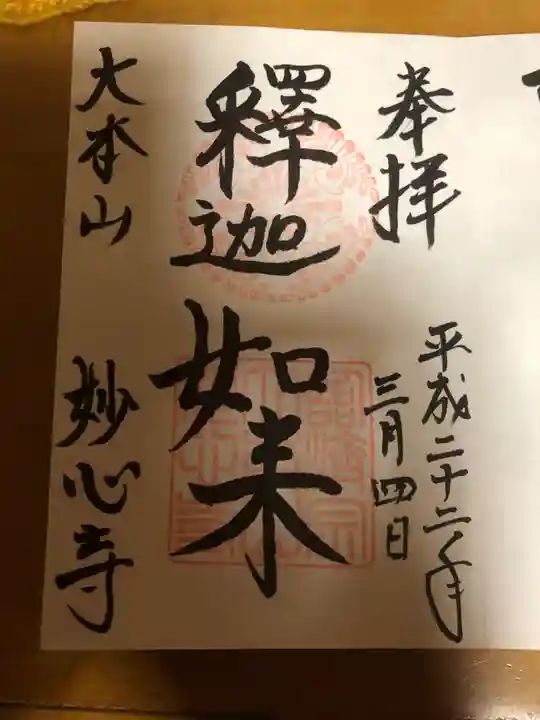 奉拝
平成二十二年
三月四日
釋迦如来
大本山 妙心寺